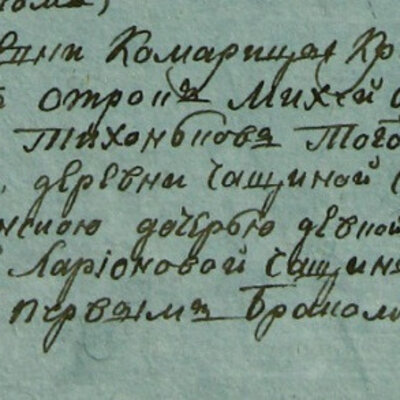 вни Комарицы Кр
отрокъ Михей
Тихонъповъ Того
деревни Чащиной
нскою дочерью девкой
Ларіоновой Чащин
первымъ Бракомъ